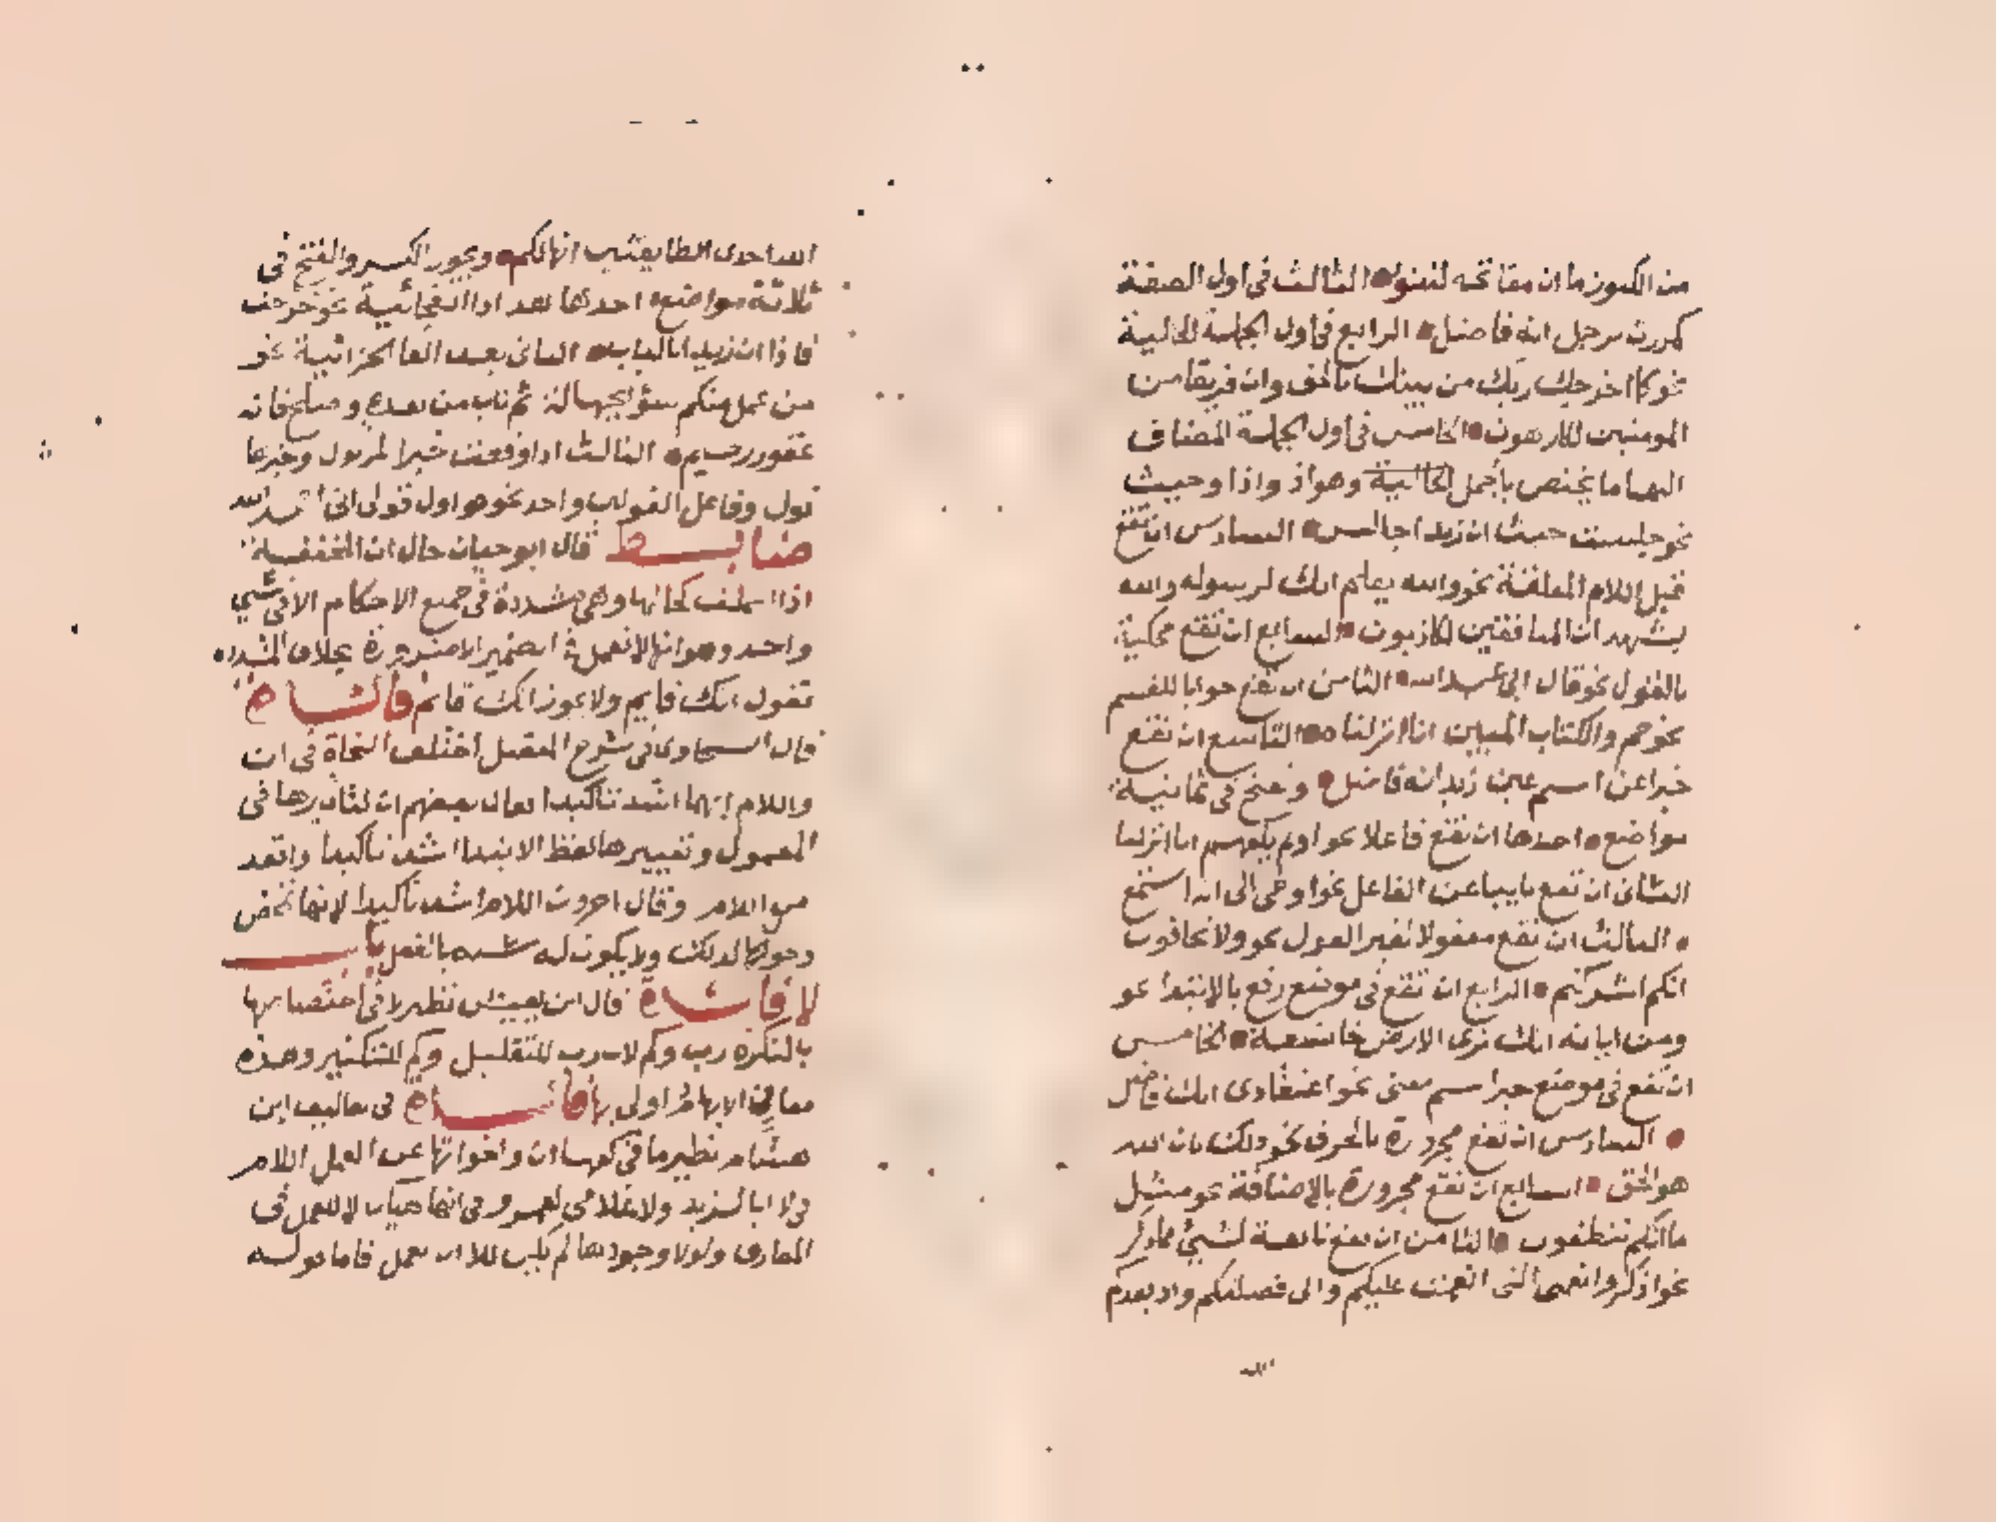 من الكنوز ما ان مفاتحه لتنوا الثالث في اول الصفة
كمررت برجل انه فاضل الرابع في اول الجملة الحالية
نحو كما اخرجك ربك من بيتك بالحق وان فريقا من
المومنين لكارهون الخامس في اول الجملة المضاف
اليها ما يختص بالجمل الحالية وهو اذ واذا وحيث
نحو جلست حيث ان زيدا جالس السادس ان تقع
قبل اللام المعلقة نحو والله يعلم انك لرسوله والله
يشهد ان المنافقين لكاذبون السابع ان تقع محكية
بالقول نحو قال اني عبد الله الثامن ان تقع جوابا للقسم
نحو حم والكتاب المبين انا انزلناه التاسع ان تقع
خبرا عن اسم عين زيد انه فاضل وتفتح في ثمانية
مواضع احدها ان تقع فاعلا نحو اولم يكفهم انا انزلنا
الثاني ان تقع نايبا عن الفاعل نحو اوحي الي انه استمع
الثالث ان تقع مفعولا لغير القول نحو ولا تخافون
انكم اشركتم الرابع ان تقع في موضع رفع بالابتدا نحو
ومن اياته انك ترى الارض خاشعة الخامس
ان تقع في موضع خبر اسم معنى نحو اعتقادي انك فاضل
السادس ان تقع مجرورة بالحرف نحو ذلك بان الله
هو الحق السابع ان تقع مجرورة بالاضافة نحو مثل
ما انكم تنطقون الثامن ان تقع تابعة لشيئ مما ذكر
نحو اذكروا نعمتي التي انعمت عليكم واني فضلتكم واذ يعدكم
الله
الله احدى الطايفتين انها لكم ويجوز الكسر والفتح في
ثلاثة مواضع احدها بعد اذا الفجائية نحو خرجت
فاذا ان زيدا بالباب الثاني بعد الفا الجزائية نحو
من عمل منكم سؤا بجهالة ثم تاب من بعده وصلح فانه
غفور رحيم الثالث اذا وقعت خبرا لمن قول وخبرها
قول وفاعل القولين واحد نحو هو اول قولي اني احمد الله
ضابط قال ابو حيان حال ان المخففة
اذا كحالها وهي مشددة في جميع الاحكام الا في شيئ
واحد وهو انها لا تعمل في الضمير الا ضرورة بخلاف المشدده
تقول انك قايم ولا يجوز انك قايم فائدة
قال السخاوي في شرح المفصل اختلف النحاة في ان
واللام ايهما اشد تاكيدا فقال بعضهم ان لتاثيرها في
المعمول وتغييرها لفظ الابتدا اشد تاكيدا واقعد
من اللام وقال اخرون اللام اشد تاكيدا لانها تمحض
دخولها لذلك ولا يكون له شبه بالفعل باب
لا فائدة قال ابن يعيش نظير لا في اختصاصها
بالنكرة رب وكم لان رب للتقليل وكم للتكثير وهذه
معاني الابهام اولى بها فائدة في تعاليق ابن
هشام نظير ما في كفها ان واخواتها عن العمل اللام
في لا ابا لزيد ولا غلامي لعمرو في انها هيات لا للعمل في
المعارف ولولا وجودها لم يكن للا ان تعمل فاما قوله